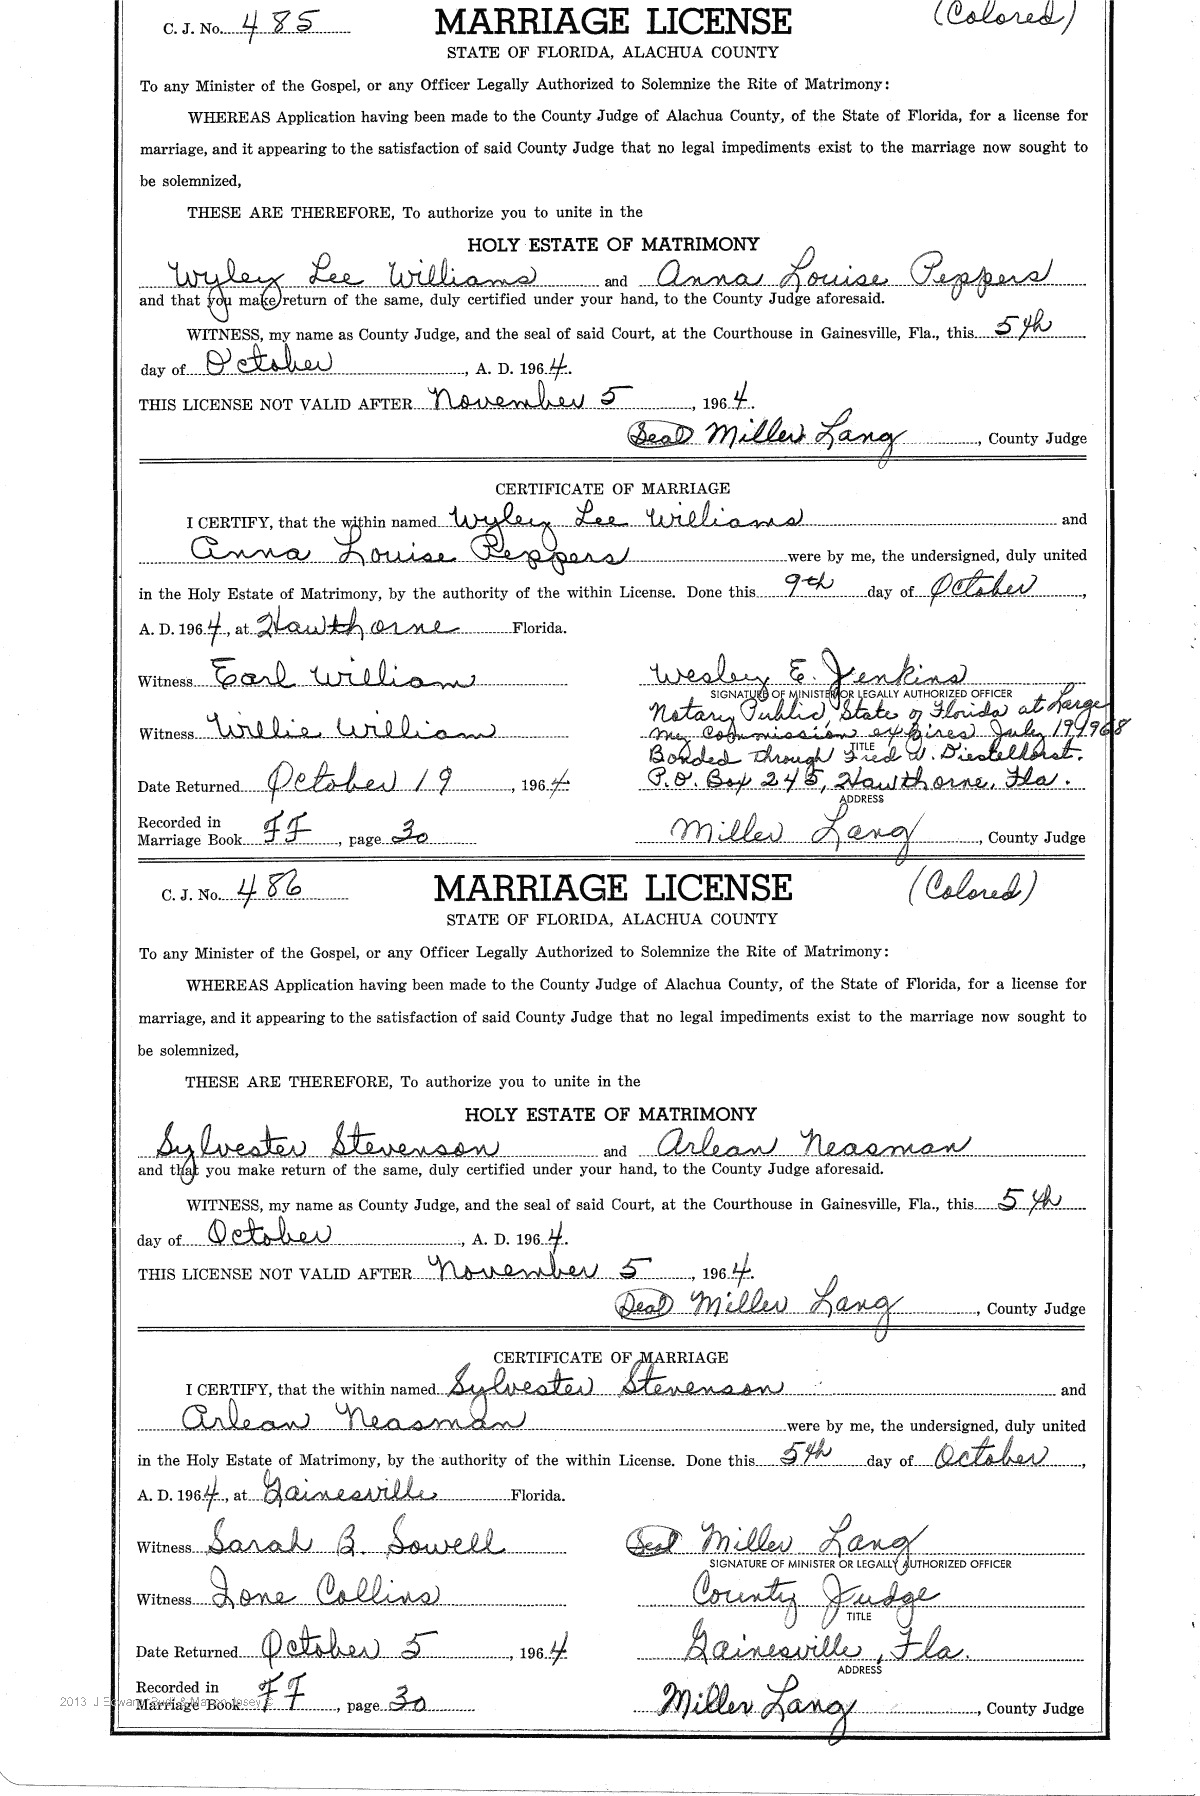 C. J. No. 485 MARRIAGE LICENSE (Colored)
STATE OF FLORIDA, ALACHUA COUNTY
To any Minister of the Gospel, or any Officer Legally Authorized to Solemnize the Rite of Matrimony:
WHEREAS Application having been made to the County Judge of Alachua County, of the State of Florida, for a license for
marriage, and it appearing to the satisfaction of said County Judge that no legal impediments exist to the marriage now sought to
be solemnized,
THESE ARE THEREFORE, To authorize you to unite in the
HOLY ESTATE OF MATRIMONY
Wyley Lee Williams and Anna Louise Peppers
and that you make return of the same, duly certified under your hand, to the County Judge aforesaid.
WITNESS, my name as County Judge, and the seal of said Court, at the Courthouse in Gainesville, Fla., this 5th
day of October, A. D. 1964.
THIS LICENSE NOT VALID AFTER November 5, 1964.
Seal Miller Lang, County Judge
CERTIFICATE OF MARRIAGE
I CERTIFY, that the within named Wyley Lee Williams and
Anna Louise Peppers were by me, the undersigned, duly united
in the Holy Estate of Matrimony, by the authority of the within License. Done this 9th day of October,
A. D. 1964, at Hawthorne Florida.
Witness Earl William Wesley E. Jenkins
SIGNATURE OF MINISTER OR LEGALLY AUTHORIZED OFFICER
Notary Public, State of Florida at Large
Witness Willie William My Commission expires July 19, 1968
Bonded through Fred W. Diestelhorst.
TITLE
Date Returned October 19, 1964 P.O. Box 245, Hawthorne, Fla.
ADDRESS
Recorded in
Marriage Book FF, page 30 Miller Lang, County Judge
C. J. No. 486 MARRIAGE LICENSE (Colored)
STATE OF FLORIDA, ALACHUA COUNTY
To any Minister of the Gospel, or any Officer Legally Authorized to Solemnize the Rite of Matrimony:
WHEREAS Application having been made to the County Judge of Alachua County, of the State of Florida, for a license for
marriage, and it appearing to the satisfaction of said County Judge that no legal impediments exist to the marriage now sought to
be solemnized,
THESE ARE THEREFORE, To authorize you to unite in the
HOLY ESTATE OF MATRIMONY
Sylvester Stevenson and Arlean Neasman
and that you make return of the same, duly certified under your hand, to the County Judge aforesaid.
WITNESS, my name as County Judge, and the seal of said Court, at the Courthouse in Gainesville, Fla., this 5th
day of October, A. D. 1964.
THIS LICENSE NOT VALID AFTER November 5, 1964.
Seal Miller Lang, County Judge
CERTIFICATE OF MARRIAGE
I CERTIFY, that the within named Sylvester Stevenson and
Arlean Neasman were by me, the undersigned, duly united
in the Holy Estate of Matrimony, by the authority of the within License. Done this 5th day of October,
A. D. 1964, at Gainesville Florida.
Witness Sarah B. Sowell Seal Miller Lang
SIGNATURE OF MINISTER OR LEGALLY AUTHORIZED OFFICER
Witness Ione Collins County Judge
TITLE
Date Returned October 5, 1964 Gainesville, Fla.
ADDRESS
Recorded in
Marriage Book FF, page 30 Miller Lang, County Judge
2013 J